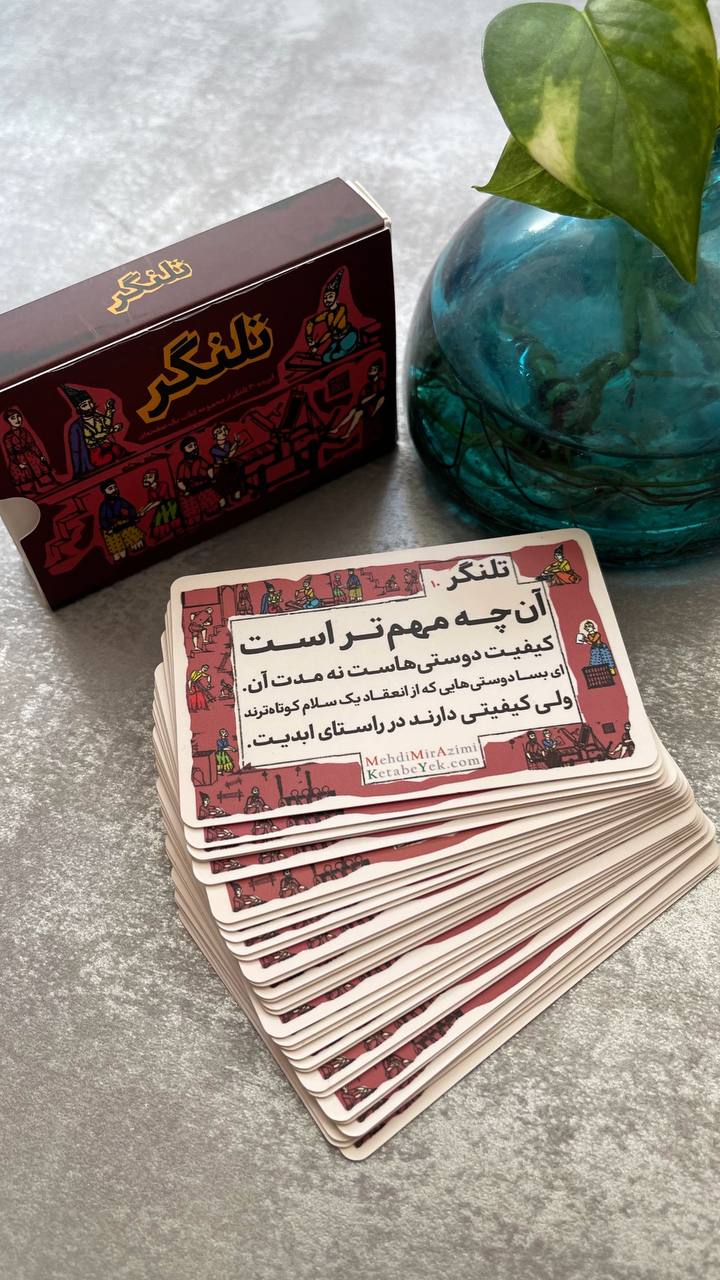 تلنگر
تلنگر
تلنگر ۱۰
آن‌چـه مهم‌تـر اسـت
کیفیـت دوستی‌هاست نه مدت آن.
ای بسـا دوستی‌هایی که از انعقـاد یک سـلام کوتاه‌ترند
ولـی کیفیتـی دارند در راسـتای ابدیـت.
MehdiMirAzimi
KetabeYek.com